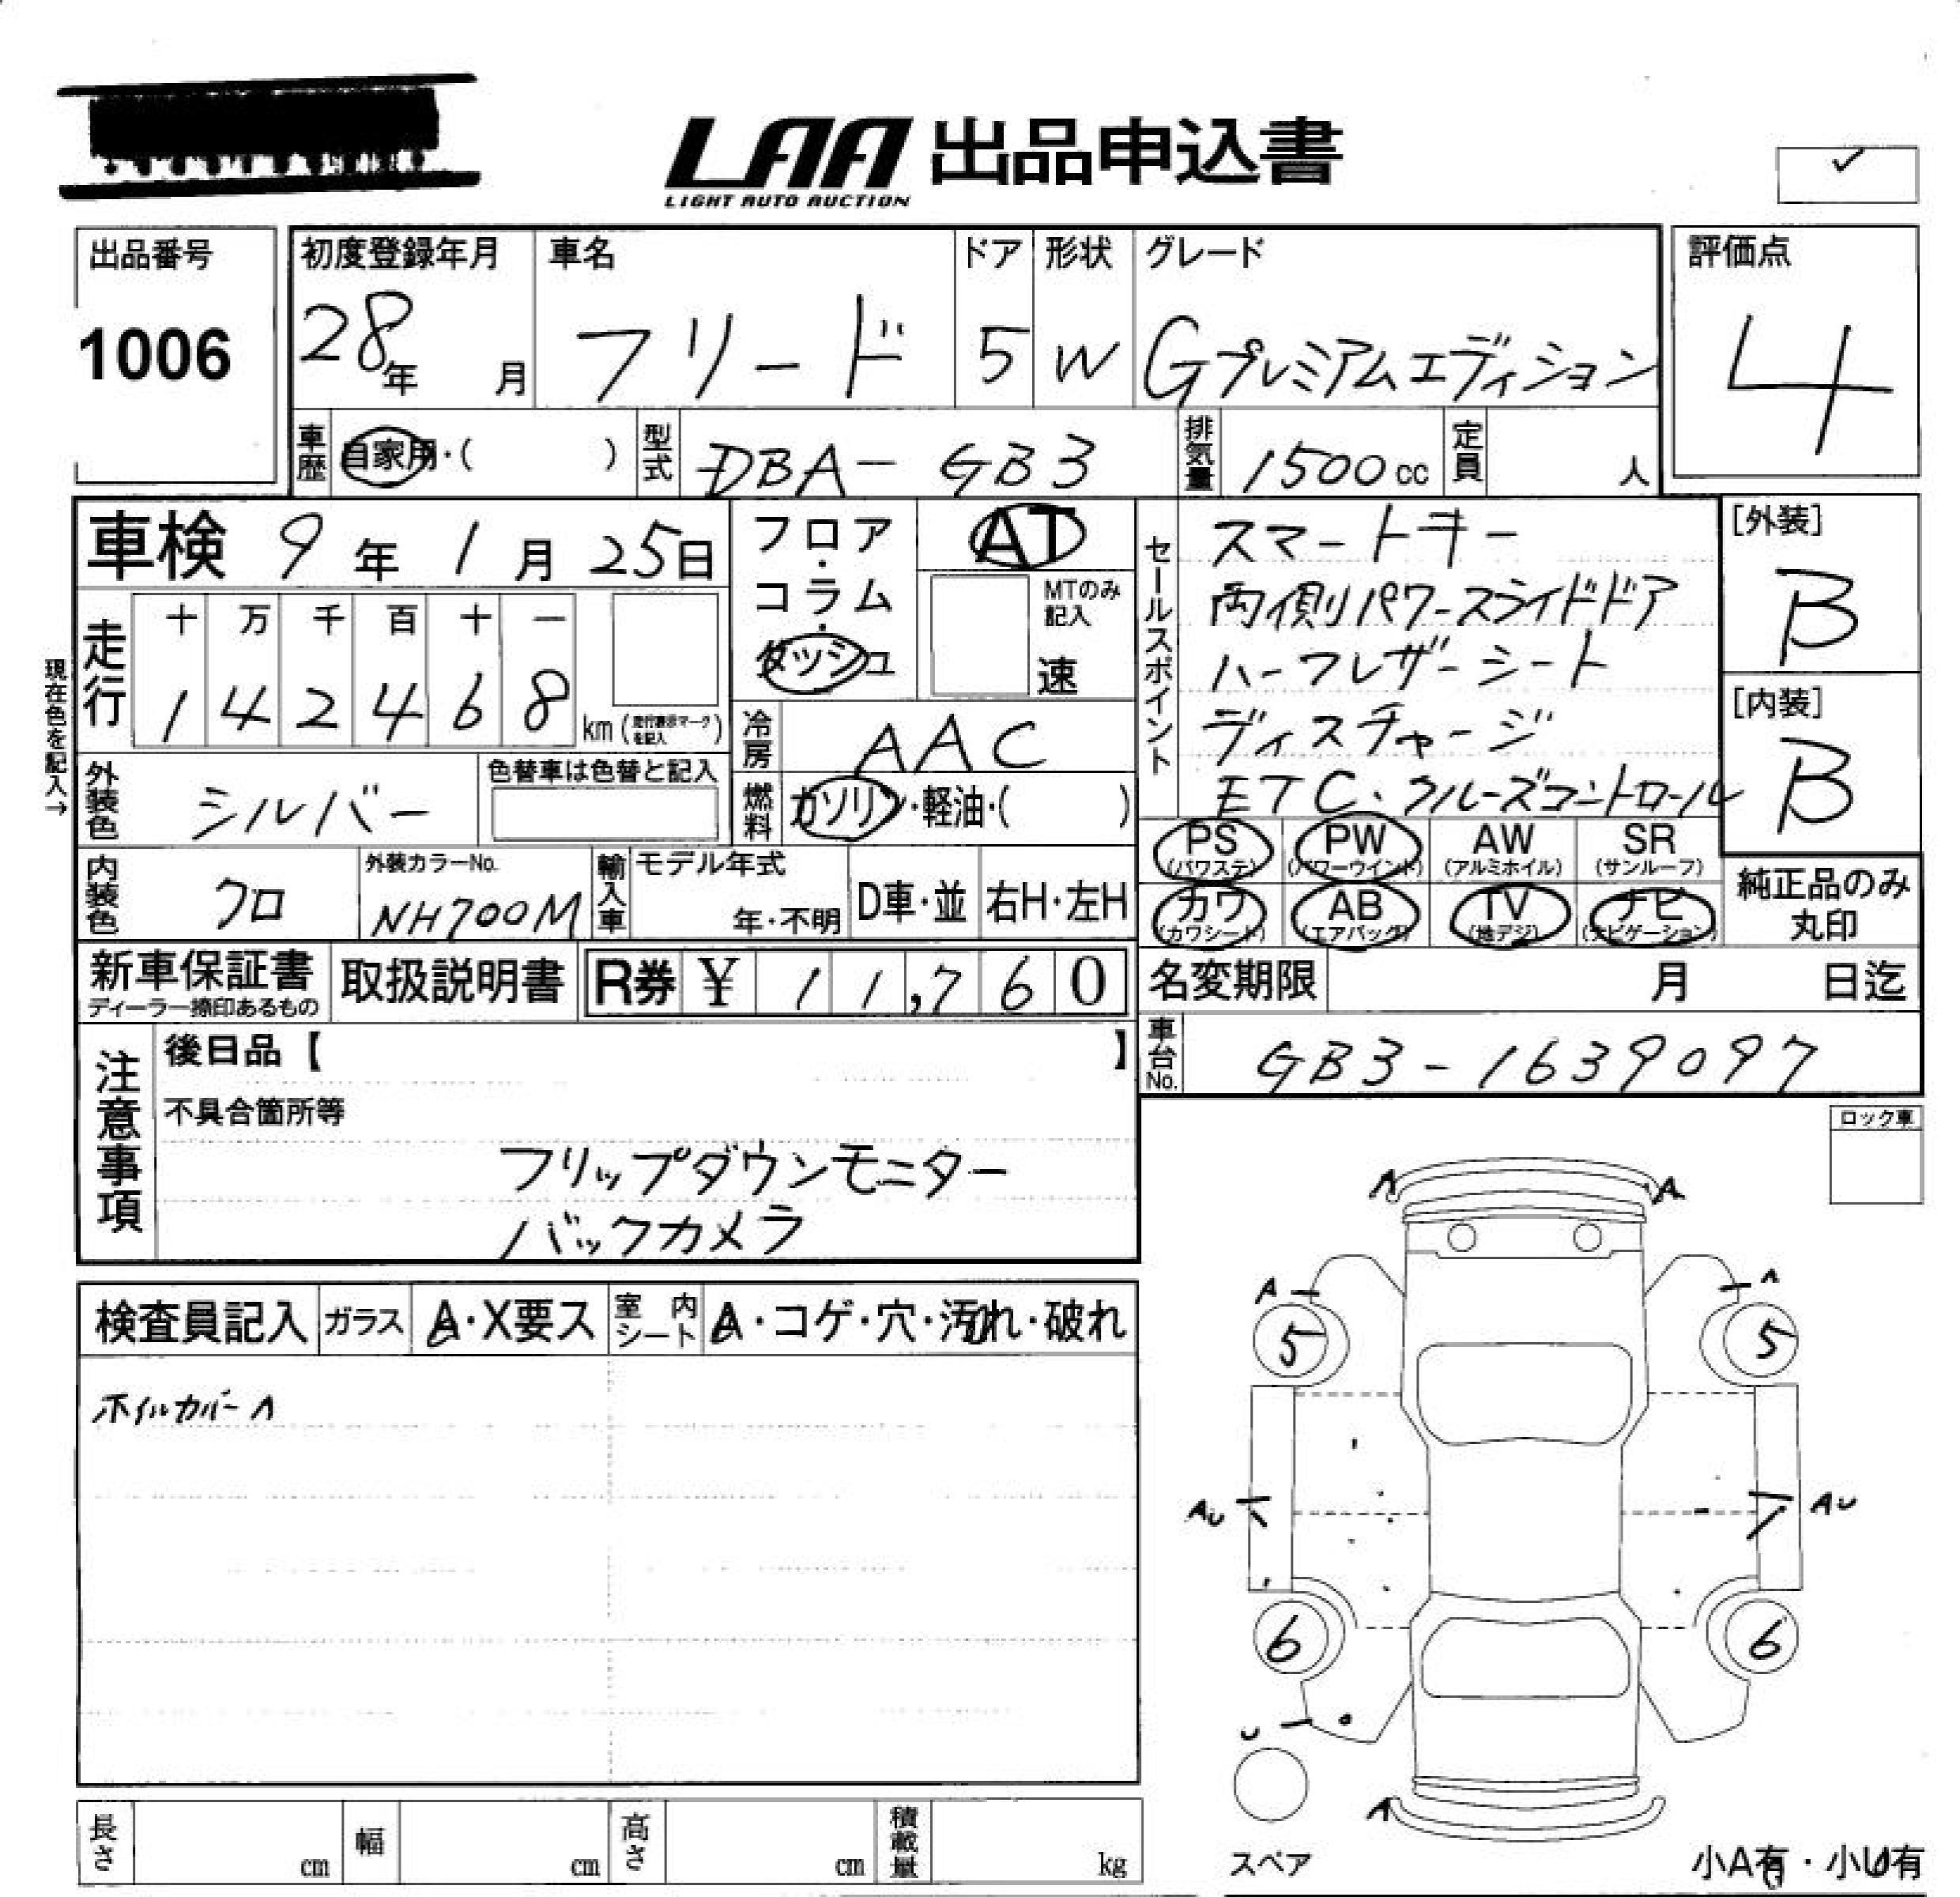 LAA 出品申込書
LIGHT AUTO AUCTION
出品番号
1006
初度登録年月
28年 月
車名
フリード
ドア
5
形状
W
グレード
Gプレミアムエディション
評価点
4
車歴 自家用・( )
型式 DBA-GB3
排気量 1500cc
定員 人
車検 9年 1月 25日
フロア・コラム・ダッシュ
AT
MTのみ記入
速
セールスポイント
スマートキー
両側パワースライドドア
ハーフレザーシート
ディスチャージ
ETC、クルーズコントロール
[外装]
B
[内装]
B
現在色を記入→
走行
十 万 千 百 十 一
1 4 2 4 6 8 km (走行表示マークを記入)
冷房 AAC
燃料 ガソリン・軽油・( )
外装色 シルバー
色替車は色替と記入
内装色 クロ
外装カラーNo.
NH700M
輸入車 モデル年式
年・不明
D車・並
右H・左H
PS (パワステ)
PW (パワーウインド)
AW (アルミホイル)
SR (サンルーフ)
カワ (カワシート)
AB (エアバック)
TV (地デジ)
ナビ (ナビゲーション)
純正品のみ丸印
新車保証書
ディーラー捺印あるもの
取扱説明書
R券 ¥ 11,760
名変期限 月 日迄
車台No. GB3-1639097
注意事項
後日品【 】
不具合箇所等
フリップダウンモニター
バックカメラ
ロック車
検査員記入
ガラス A・X要ス
室内シート A・コゲ・穴・汚れ・破れ
ホイルカバーA
A A
A A
5 5
AU AU
6 6
U
A
スペア
小A有・小U有
長さ cm
幅 cm
高さ cm
積載量 kg